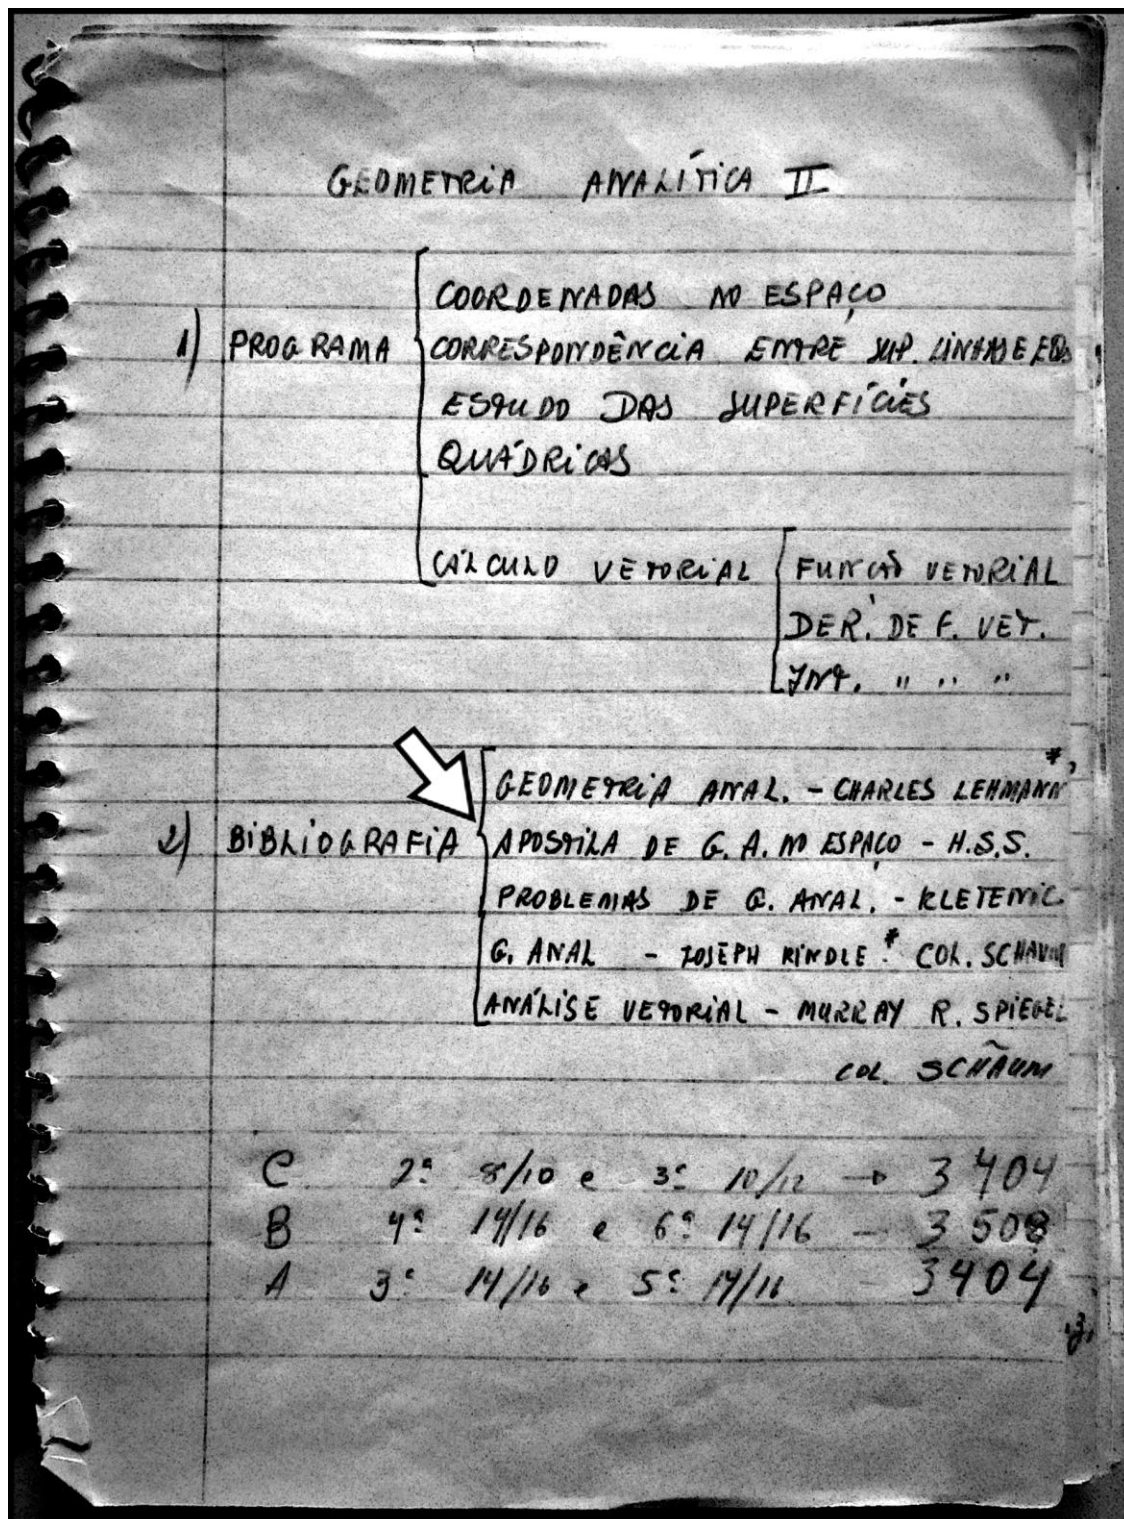 GEOMETRIA ANALÍTICA II
COORDENADAS NO ESPAÇO
1) PROGRAMA CORRESPONDÊNCIA ENTRE SUP. LINHAS E EQS
ESTUDO DAS SUPERFÍCIES
QUÁDRICAS
CÁLCULO VETORIAL FUNÇÃO VETORIAL
DER. DE F. VET.
INT. " " "
GEOMETRIA ANAL. - CHARLES LEHMANN *
2) BIBLIOGRAFIA APOSTILA DE G. A. NO ESPAÇO - H.S.S.
PROBLEMAS DE G. ANAL. - KLETENIC
G. ANAL - JOSEPH KINDLE * COL. SCHAUM
ANÁLISE VETORIAL - MURRAY R. SPIEGEL
COL. SCHAUM
C 2ª 8/10 e 3ª 10/12 → 3404
B 4ª 14/16 e 6ª 14/16 - 3508
A 3ª 14/16 e 5ª 14/16 - 3404